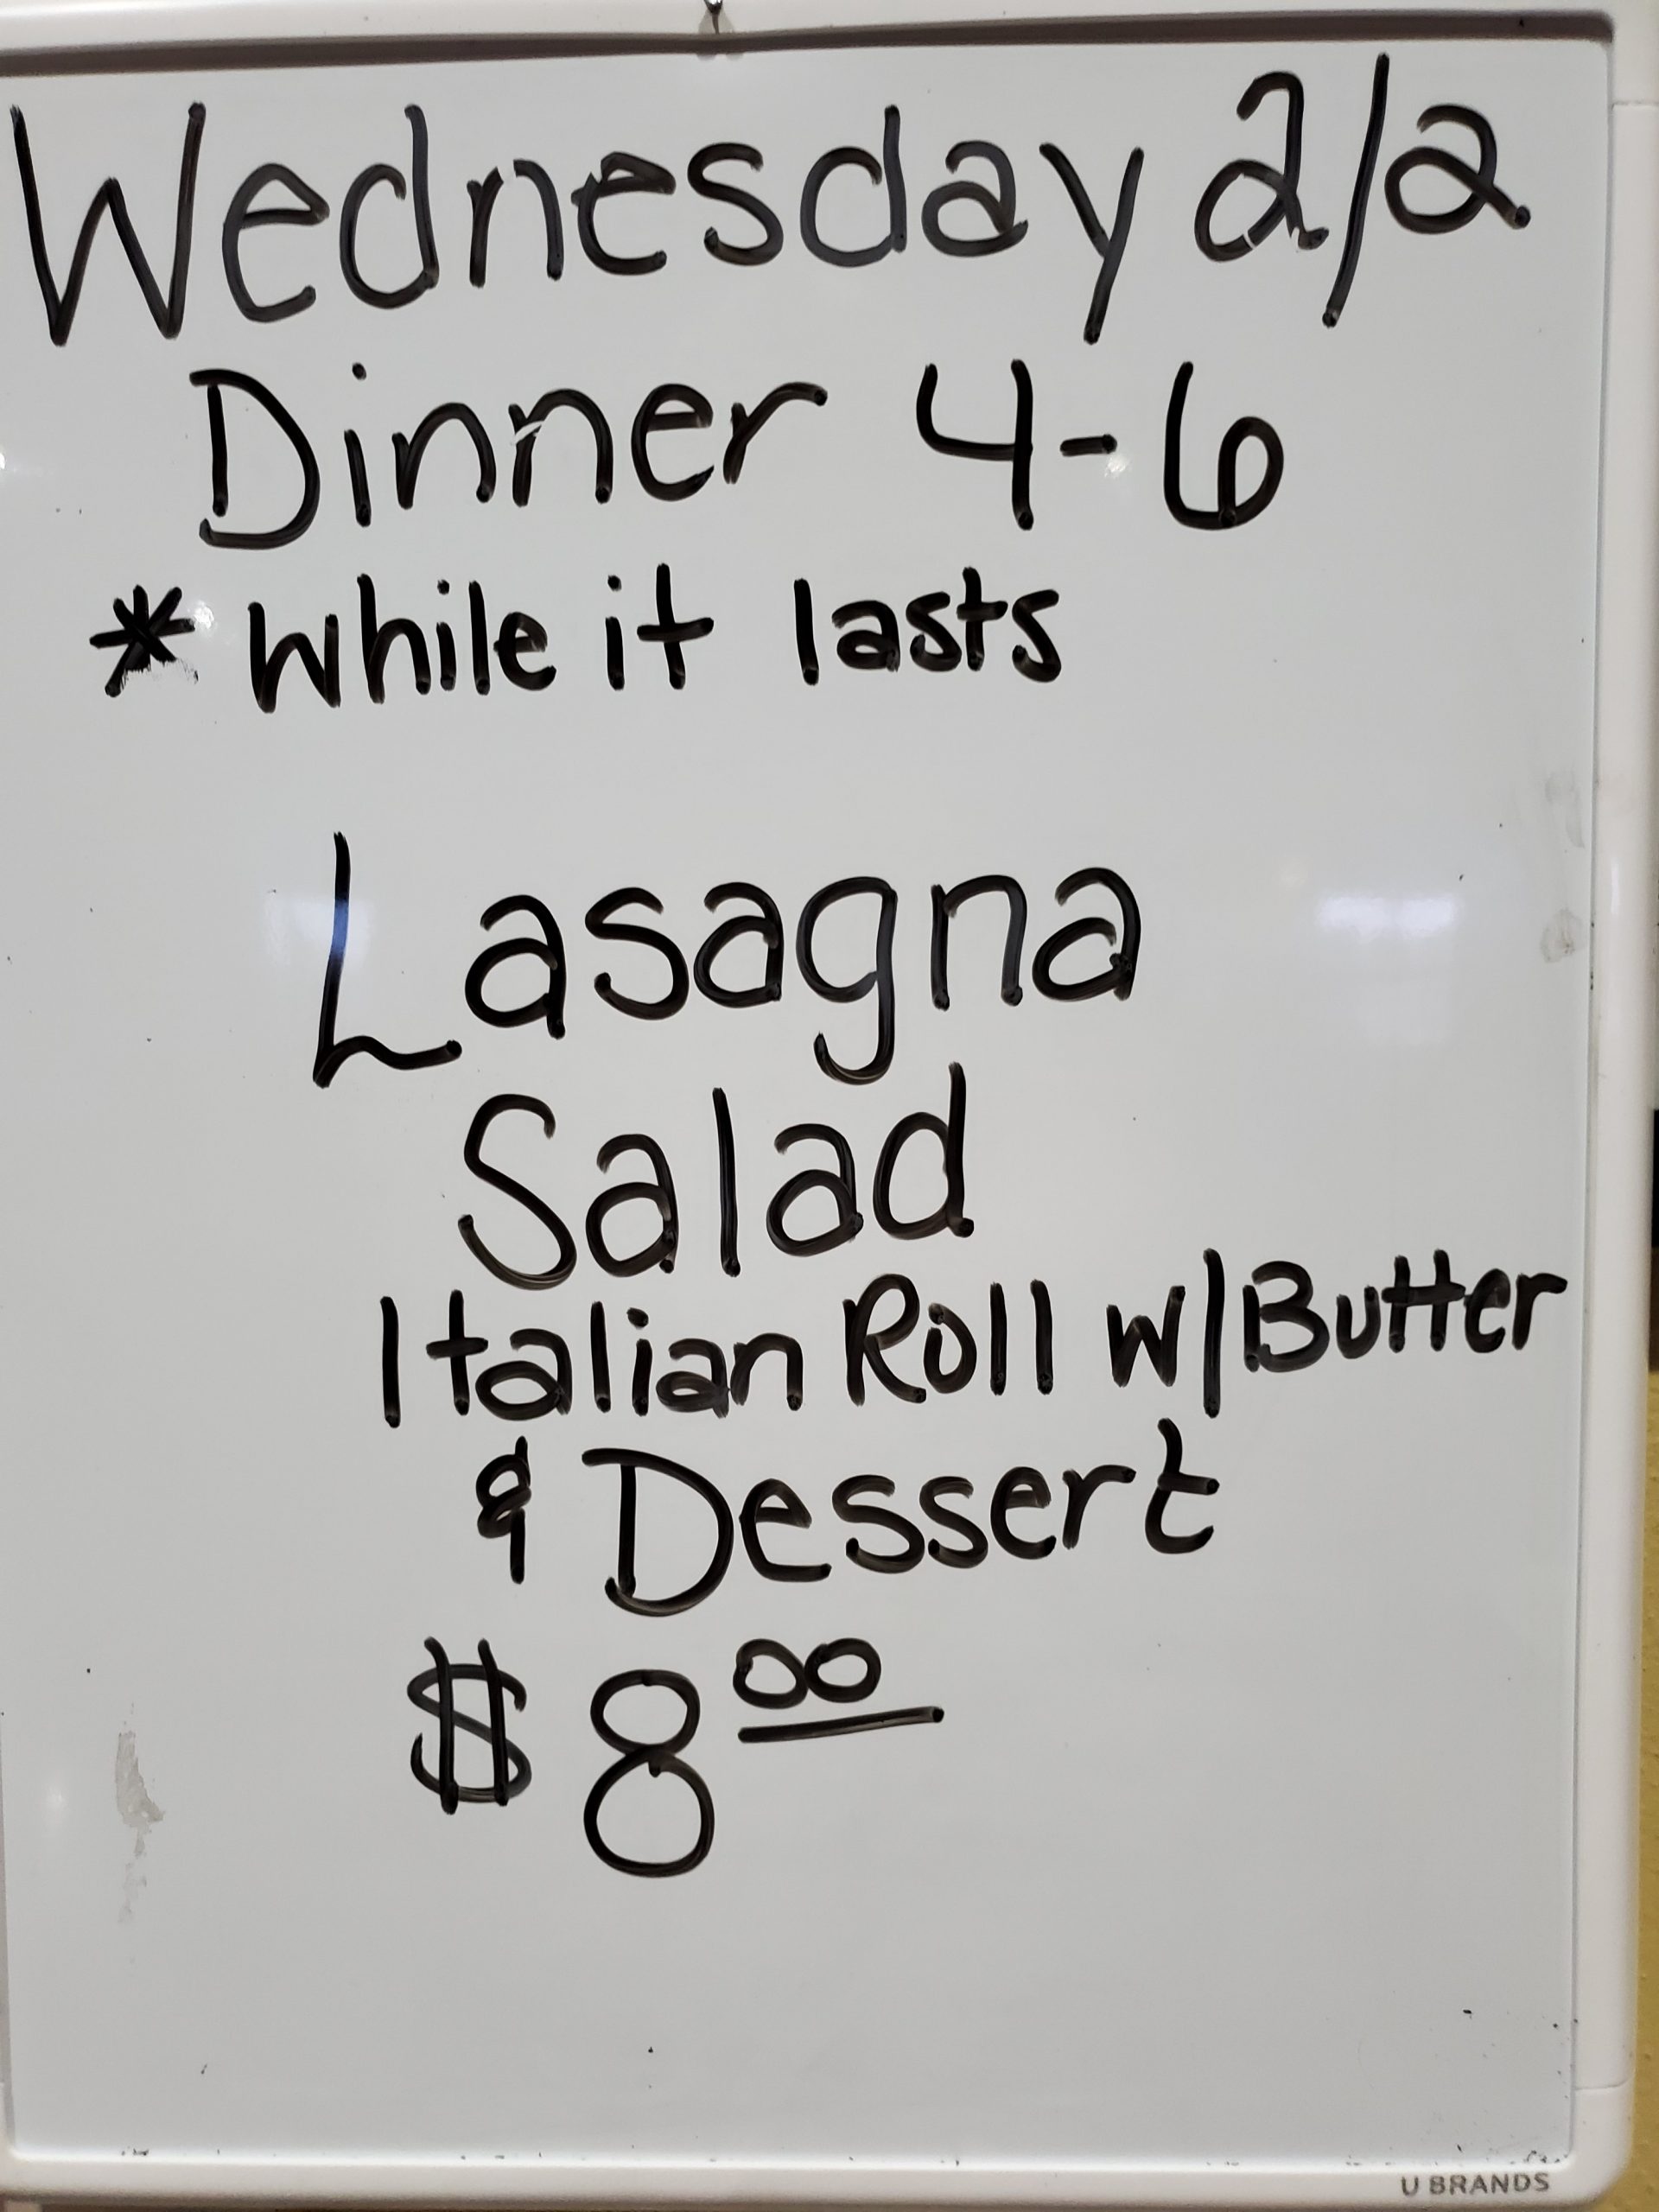 Wednesday 2/2
Dinner 4-6
* while it lasts
Lasagna
Salad
Italian Roll w/Butter
& Dessert
$8.00
U BRANDS